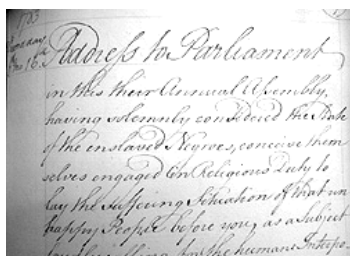 1783
16.
Address to Parliament
in this their Annual Assembly,
having solemnly considered the State
of the enslaved Negroes, conceive them
selves engaged in Religious Duty to
lay the Suffering Situation of that un
happy People before you, as a Subject
loudly calling for the humane Interpo